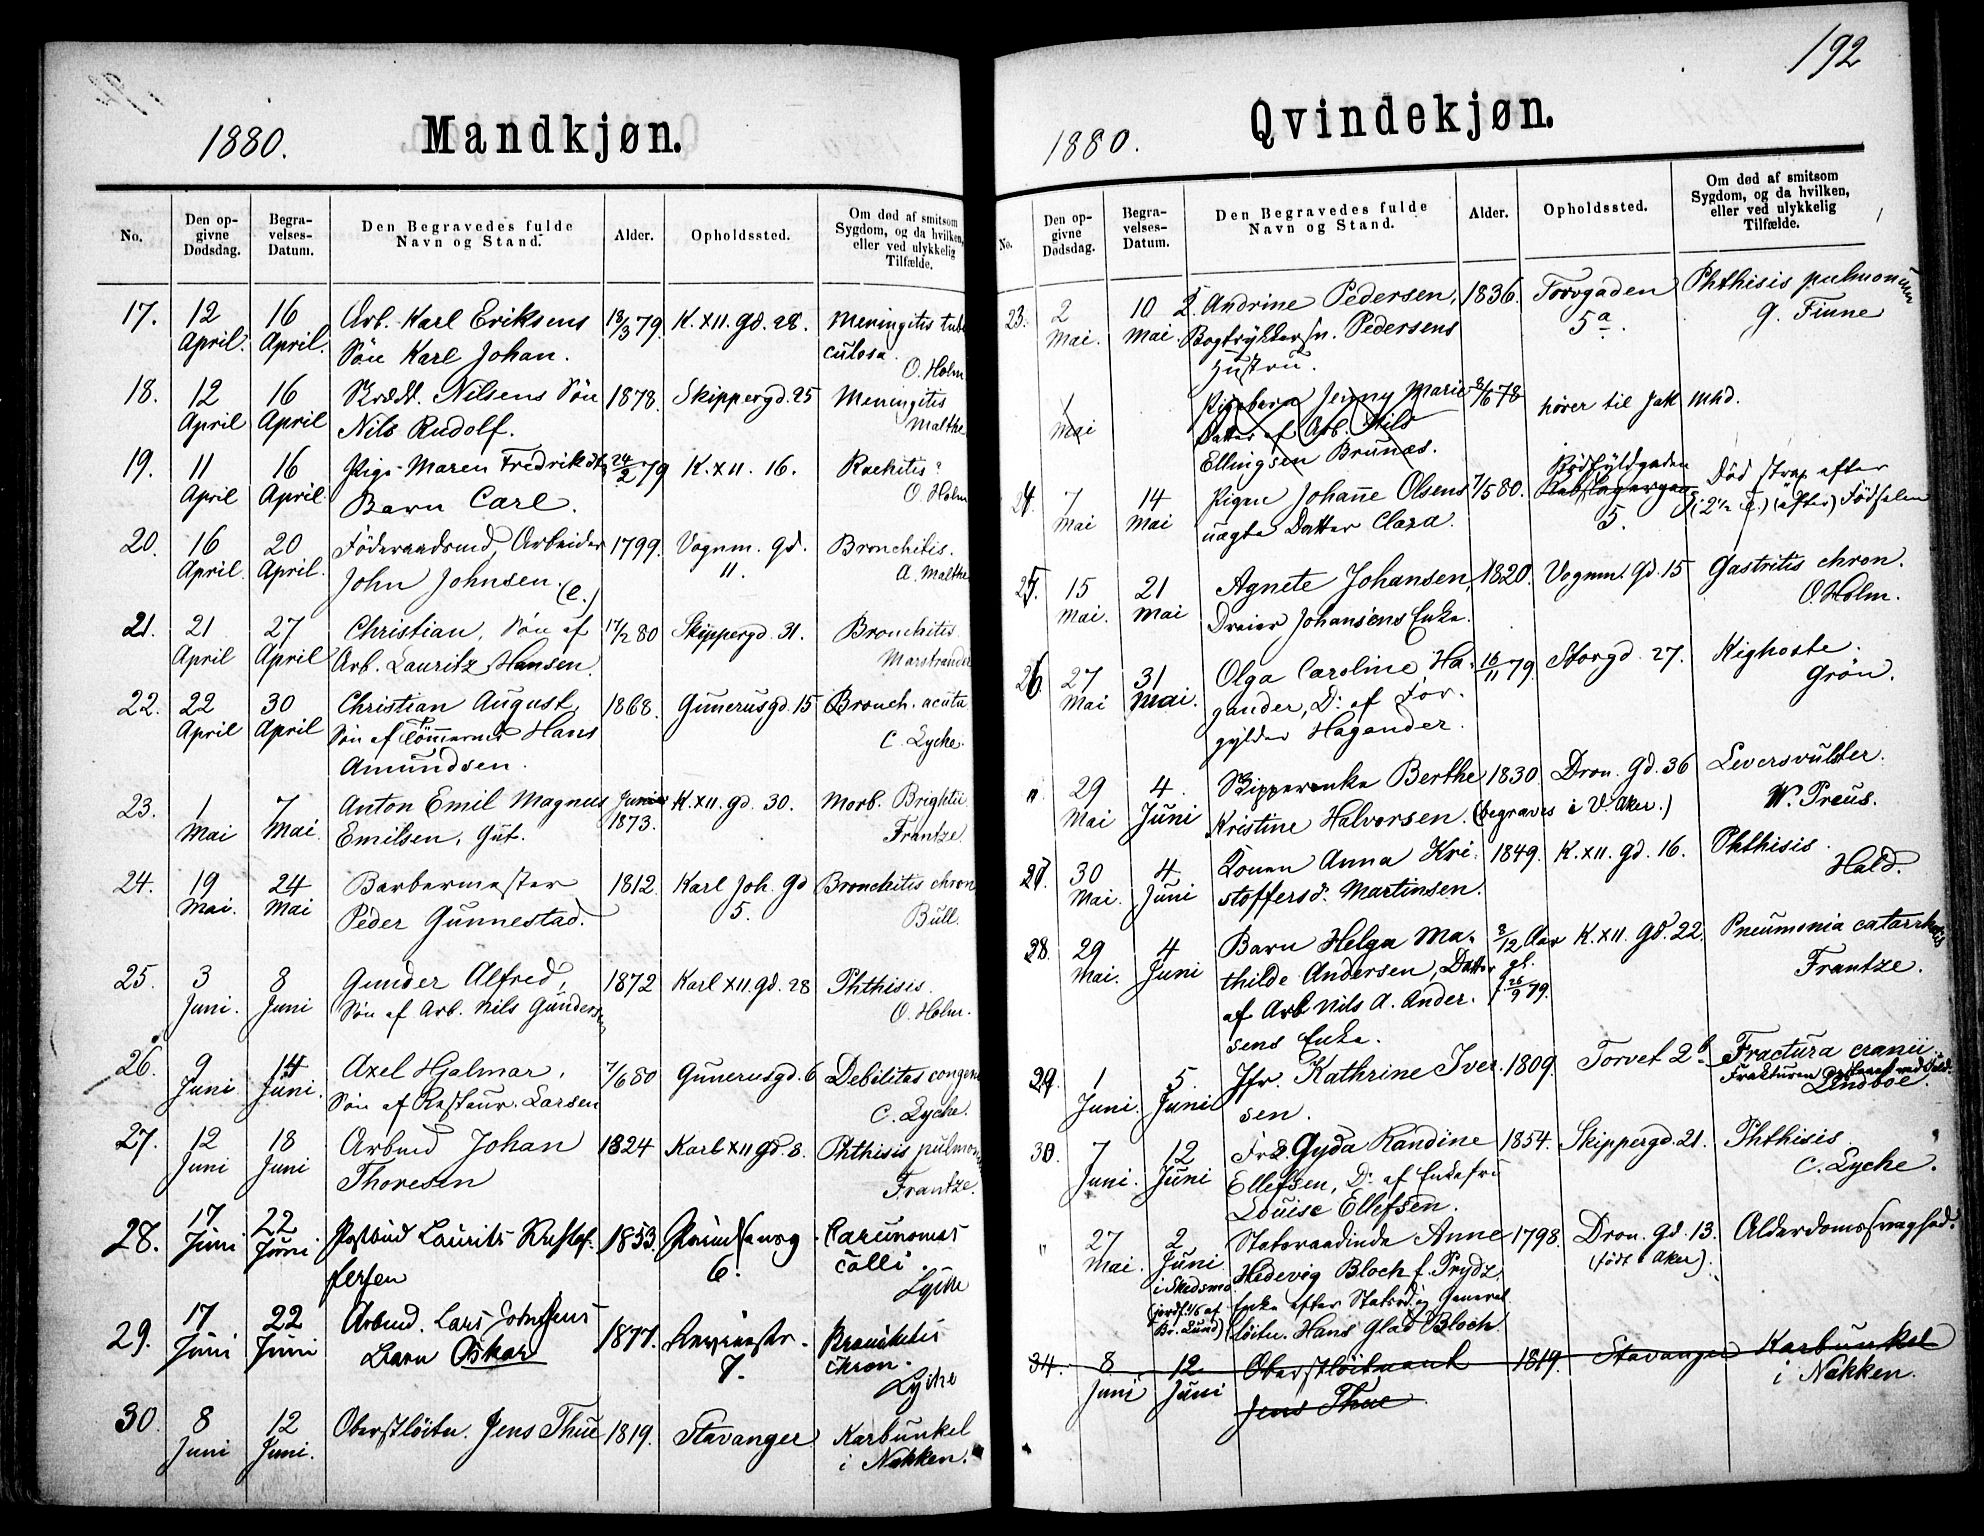 1880. Mandkjøn.
No. Den opgivne Dødsdag. Begravelses-Datum. Den Begravedes fulde Navn og Stand. Alder. Opholdssted. Om død af smitsom Sygdom, og da hvilken, eller ved ulykkelig Tilfælde.
17. 12 16 Arb. Karl Eriksens 18/3 79. K. XII. gd. 28. Meningitis tuber
April. April. Søn Karl Johan. culosa.
O. Holm
18. 12 16 Skrædd. Nilsens Søn 1878. Skippergd. 25 Meningitis
April April Nils Rudolf. Malthe
19. 11 16 Pige Maren Fredriksd. 24/2 79 K. XII. 16. Rachitis
April April. Barn Carl. O. Holm
20. 16 20 Föderaadsmd, Arbeider 1799. Vognm. gd. Bronchitis.
April. April. John Johnsen. (e.) 11. A. Malthe
21. 21 27 Christian, Søn af 17/2 80 Skippergd. 31. Bronchitis
April April Arb. Lauritz Hansen. Marstrander
22. 22 30 Christian August, 1868. Gunerusgd. 15 Bronch. acuta
April April Søn af Tömmermd Hans C. Lyche.
Amundsen.
23. 1 7 Anton Emil Magnus Juni K. XII. gd. 30. Morb. Brightii
Mai Mai. Emilsen, Gut. 1873. Frantze
24. 19 24 Barbermester 1812. Karl Joh. gd Bronchitis chron
Mai. Mai Peder Gunnestad. 5. Bull.
25. 3 8 Gunder Alfred, 1872 Karl XII. gd. 28 Phthisis.
Juni. Juni Søn af Arb. Nils Gundersen O. Holm.
26. 9 14 Axel Hjalmar, 7/6 80 Gunerusgd. 6 Debilitas congen
Juni Juni. Søn af Restaur. Larsen C. Lyche.
27. 12 18 Arbmd Johan 1824 Karl XII gd. 8. Phthisis pulmon
Juni Juni Thoresen Frantze.
28. 17 22 Postbud Laurits Kristof- 1853. 6. Carcinomas
Juni Juni fersen colli.
Lyche
29. 17 22 Arbmd. Lars Johnsens 1877. 7. Bronchitis
Juni Juni Barn Oskar chron.
Lyche
30. 8 12 Oberstlöitn. Jens Thue 1819. Stavanger Karbunkel
Juni Juni. i Nakken.
192
1880. Qvindekjøn.
No. Den opgivne Dødsdag. Begravelses-Datum. Den Begravedes fulde Navn og Stand. Alder. Opholdssted. Om død af smitsom Sygdom, og da hvilken, eller ved ulykkelig Tilfælde.
23. 2 10 Andrine Pedersen, 1836. Torvgaden Phthisis pulmonum
Mai. Mai. Bogtrykkersv. Pedersens 5a. G. Finne
Hustru.
1 Pigebarn Jenny Marie 78 hører til Jak mhd.
Mai Datter af Arb. Nils
Ellingsen Brunæs.
24. 7 14 Pigen Johanne Olsens 7/5 80. Rødfyldgaden Død strax efter
Mai Mai uægte Datter Clara. Rebslagergang 5. (2½ T.) (efter) Fødselen
25. 15 21 Agnete Johansen, 1820. Vognm. Gd. 15 Gastritis chron.
Mai. Mai Dreier Johansens Enke. O. Holm.
26. 27 31 Olga Caroline Ha- 16/11 79. Storgd. 27. Kighoste.
Mai Mai. gander, D. af For- Grøn.
gylder Hagander.
" 29 4 Skipperenke Berthe 1830 Dron. Gd. 36 Leversvulster.
Mai Juni Kristine Halvorsen. (begraves i V. Aker.) W. Preus.
27. 30 4 Konen Anna Kri- 1849. K. XII. gd. 16. Phthisis.
Mai. Juni stoffersd. Martinsen. Hald.
28. 29 4 Barn Helga Ma- 8/12 Aar K. XII. gd. 22. Pneumonia catarrhalis
Mai. Juni thilde Andersen, Datter gl. Frantze.
af Arb Nils A. Ander- f. 26/9 79.
sens Enke.
29. 1 5. Jfr. Kathrine Iver- 1809. Torvet 2b Fractura cranii.
Juni. Juni sen. Frakturen opstaaet ved Fald.
Lindboe.
30. 7 12 Frø. Gyda Randine 1854. Skippergd. 21. Phthisis.
Juni. Juni Ellefsen, D. af Enkefru C. Lyche.
Louise Ellefsen.
" 27 2 Statsraadinde Anne 1798. Dron. gd. 13. Alderdomssvaghed.
Mai. Juni Hedevig Bloch f. Prydz, (født Aker).
i Skedsmo Enke efter Statsrd. og General
(jordf. 1/6 af Br. Lund) löitn. Hans Glad Bloch.
31. 8 12 Oberstlöitnant 1819. Stavanger Karbunkel
Juni Juni Jens Thue i Nakken.